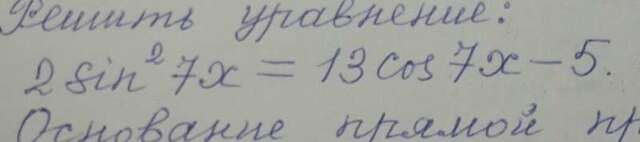 Решить уравнение:
2 sin² 7x = 13 cos 7x − 5.
Основание прямой